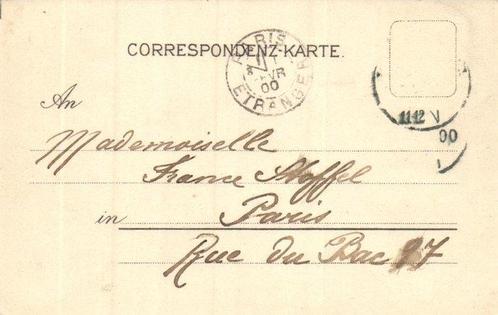 CORRESPONDENZ-KARTE.
PARIS
AVR
00
ETRANGER
11-12 V
00
An
Mademoiselle
France Stoffel
in Paris
Rue du Bac 97